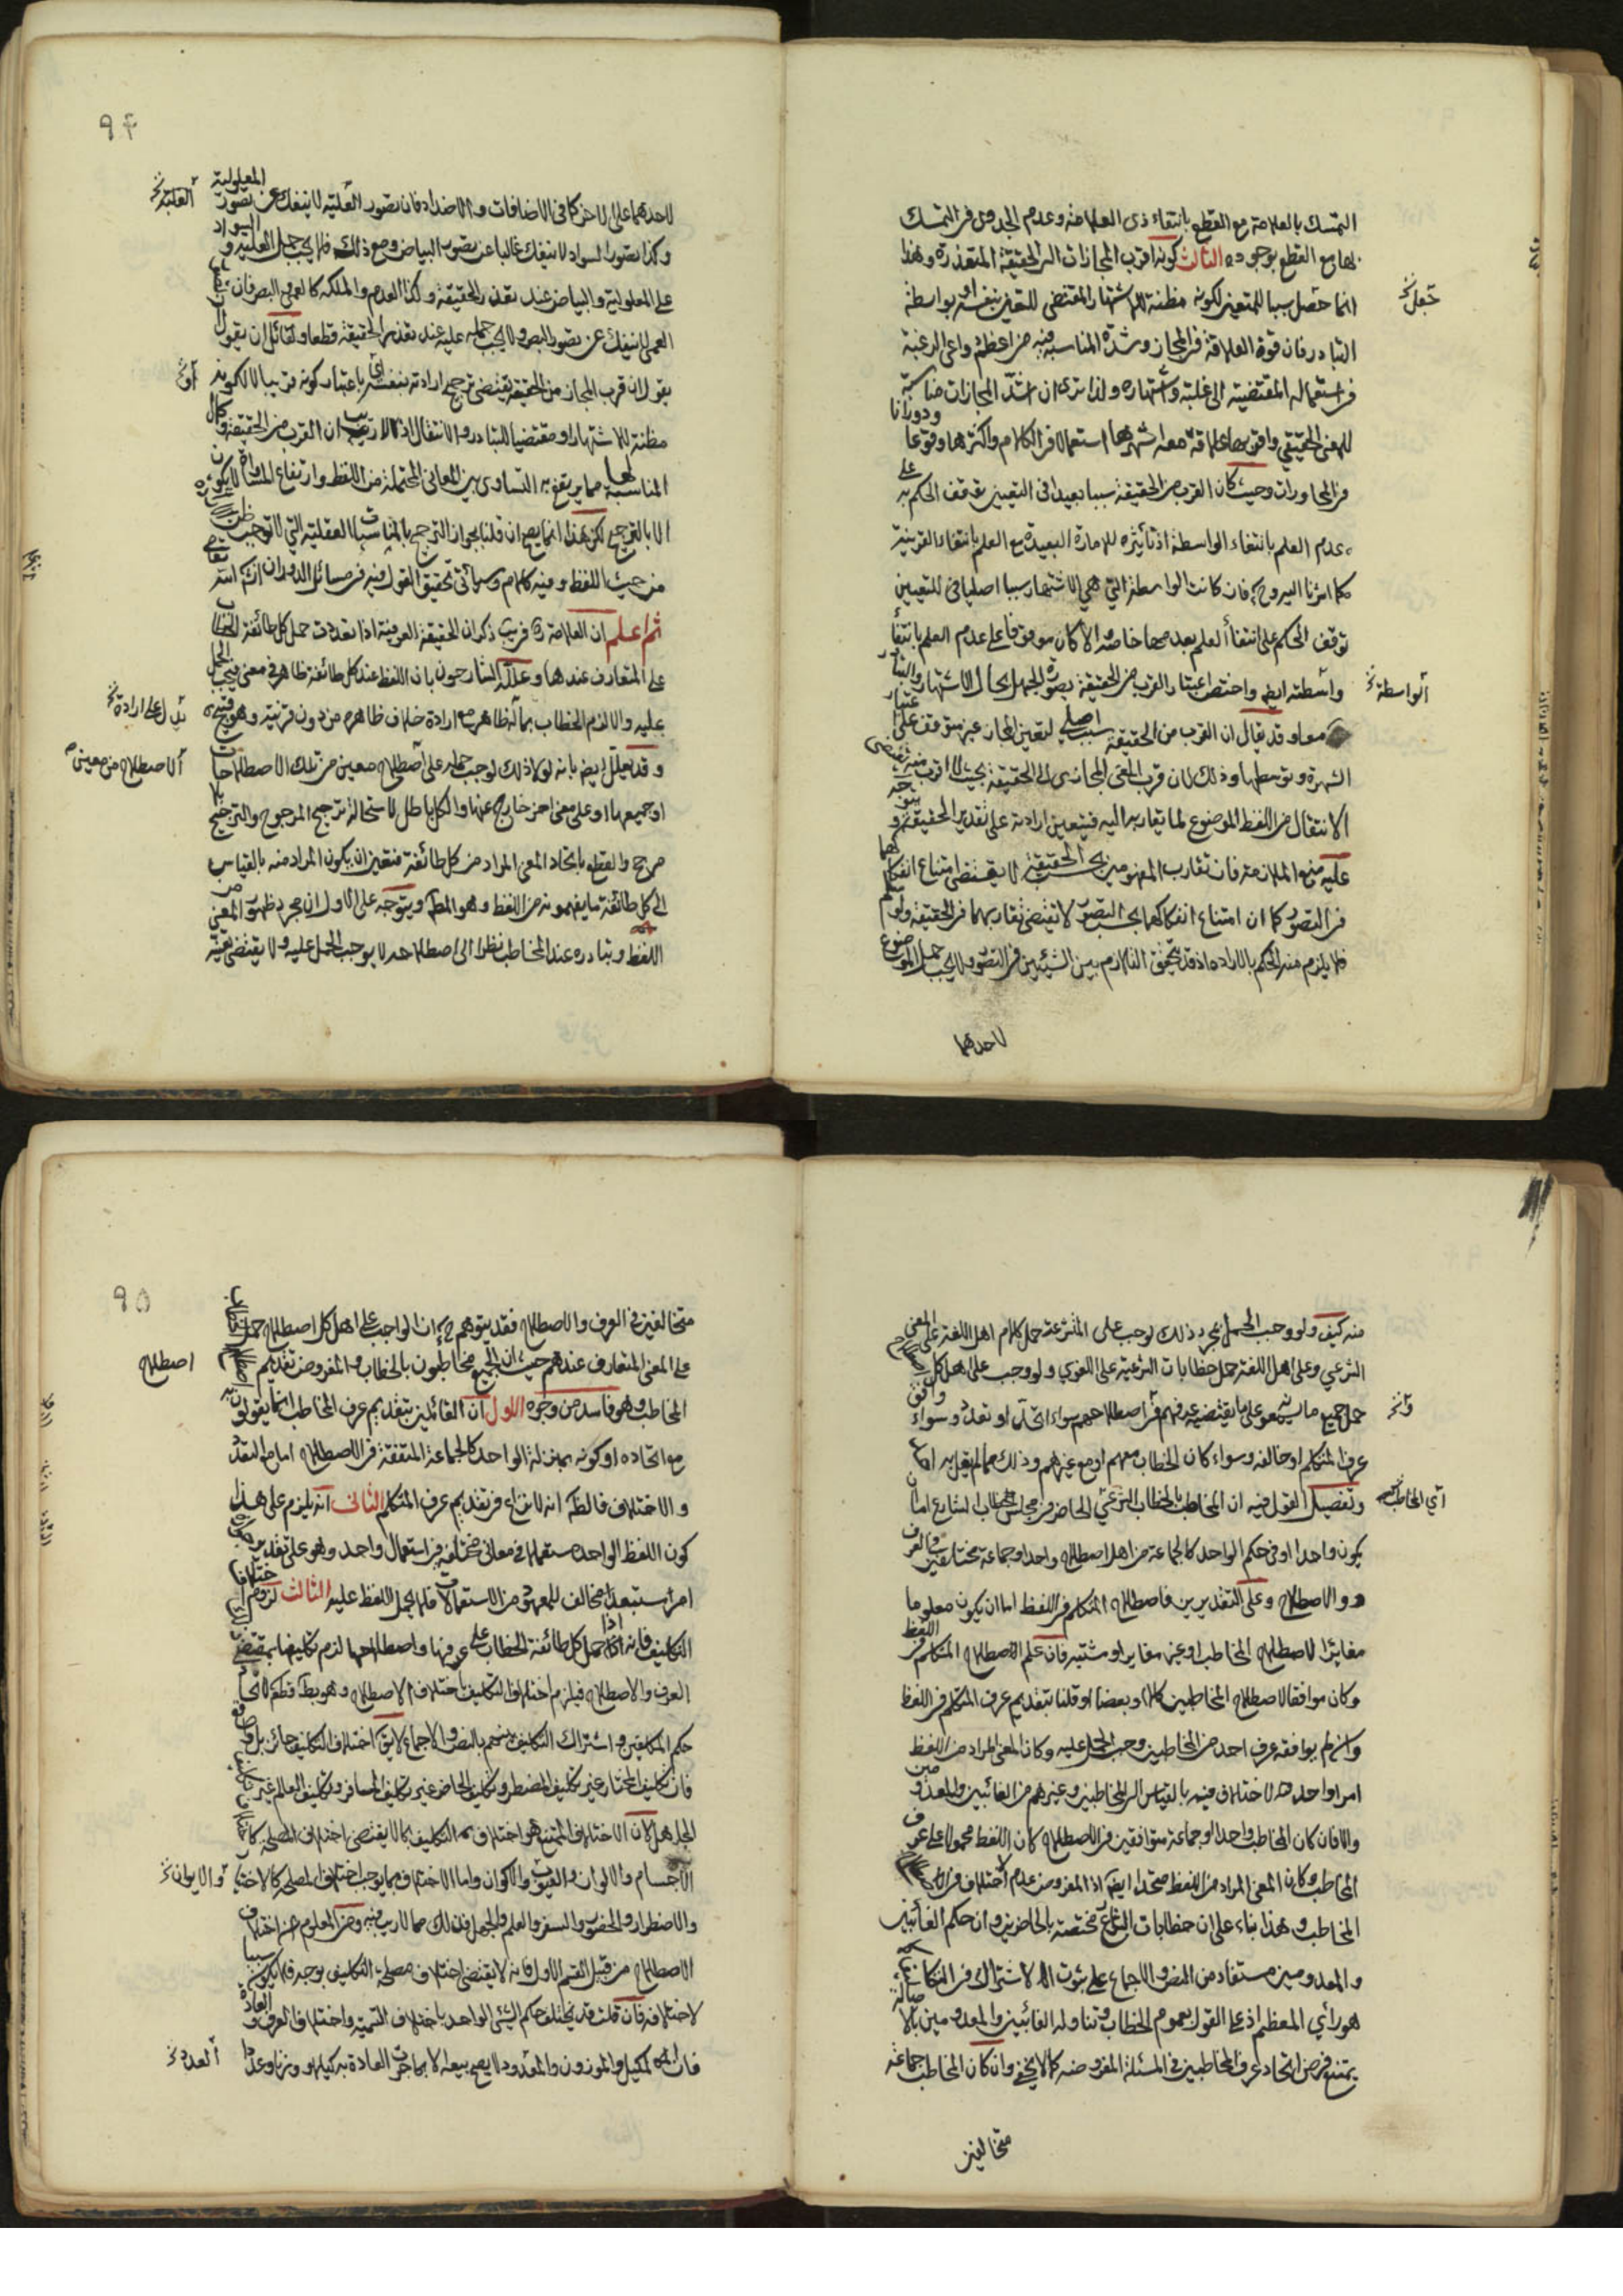 التمسك بالعلامة مع القطع بانتفاء ذى العلامة وعدم الجدوى فى التمسك
بها مع القطع بوجوده الثالث كونه اقرب المجازات الى الحقيقة المتعذرة وهذا
انما حصل سببا للتعين لكونه مظنة للاشتهار المقتضى للتعين بنفسه او بواسطة
تجعل خ
التبادر فان قوة العلاقة فى المجاز وشدة المناسبة فيه من اعظم دواعى الرغبة
فى استعماله المقتضية الى غلبته واشتهاره ولذا ترى ان اشد المجازات مناسبة
للمعنى الحقيقي واقويها علاقة معه اشهرها استعمالا فى الكلام واكثرها وقوعا ودورانا
فى المحاورات وحيث كان القرب من الحقيقة سببا بعيدا فى التعيين توقف الحكم به على
عدم العلم بانتفاء الواسطة اذ تأثيره للامارة البعيدة مع العلم بانتفاء القرينة
كما اشرنا اليه وح فان كانت الواسطة التي هي الاشتهار سببا اصليا فى للتعيين
توقف الحكم على انتفاء العلم بعدمها خاصة والا كان موقوفا على عدم العلم بانتفاء
واسطته ايض واختص اعتبار القرب من الحقيقة بصورة الجهل بحال الاشتهار والتبادر
الواسطة خ
معا وقد يقال ان القرب من الحقيقة سبب اصلي لتعين المجاز غير متوقف على اعتبار
الشهرة وتوسطها وذلك لان قرب المعنى المجازى الى الحقيقة بحيث لا اقرب منه يقتضى
الانتقال من اللفظ الموضوع لما يقاربه اليه فيتعين ارادته على تقدير الحقيقة ويتوجه
عليه منع الملازمة فان تقارب المفهومين بحسب الحقيقة لا يقتضى امتناع انفكاكهما
فى التصور كما ان امتناع انفكاكهما بحسب التصور لا يقتضى تقاربهما فى الحقيقة ولو سلم
فلا يلزم منه الحكم بالاراده اذ قد يتحقق التلازم بين الشيئين فى التصور ولا يجب حمل الموضوع
لاحدهما
٩٤
لاحدهما على الاخر كما فى الاضافات والاضداد فان تصور العلية لا ينفك عن تصور المعلولية
العلية خ
وكذا تصور السواد لا ينفك غالبا عن تصور البياض ومع ذلك فلا يجب حمل العلية والسواد
على المعلولية والبياض عند تعذر الحقيقة وكذا العدم والملكه كالعمى والبصر فان
العمى لا ينفك عن تصور البصر ولا يجب حمله عليه عند تعذر الحقيقة قطعا ولقائل ان يقول
يقول ان قرب المجاز من الحقيقة يقتضى ترجيح ارادته بنفسه اى باعتبار كونه قريبا لا لكونه
مظنة للاشتهار او مقتضيا للتبادر والانتقال اذ لا ريب ان القرب من الحقيقة وكمال
المناسبة لها مما يرتفع به التساوى بين المعانى المحتملة من اللفظ وارتفاع المساواة لا يكون
الا بالترجيح لكن هذا انما يصح ان قلنا بجواز الترجيح بالمناسبات العقلية التي لا توجب ظن
من حيث اللفظ وفيه كلام وسيأتى تحقيق القول فيه فى مسائل الدوران انش الله تعالى
ثم اعلم ان العلامة ره فى يب ذكر ان الحقيقة العرفية اذا تعددت حمل كل طائفة الخطاب
على المتعارف عندها وعلله الشارحون بان اللفظ عند كل طائفة ظاهر فى معنى فيجب الحمل
عليه والا لزم الخطاب بماله ظاهر مع ارادة خلاف ظاهره من دون قرينة وهو قبيح
يدل على ارادة خ
وقد يعلل ايض بانه لولا ذلك لوجب حمله على اصطلاح معين من تلك الاصطلاحات
الاصطلاح من معين
او جميعها او على معنى اخر خارج عنها والكل باطل لاستحالة ترجيح المرجوح والترجيح بلا
مرجح والقطع باتحاد المعنى المراد من كل طائفة فتعين ان يكون المراد منه بالقياس
الى كل طائفة ما يفهمونه من اللفظ وهو المط ويتوجه على الاول ان مجرد ظهور المعنى من
اللفظ وتبادره عند المخاطب نظرا الى اصطلاحه لا يوجب الحمل عليه ولا يقتضى تعينه
منه كيف ولو وجب الحمل بمجرد ذلك لوجب على المتشرعة حمل كلام اهل اللغة على المعنى
الشرعي وعلى اهل اللغة حمل خطابات الشرعية على اللغوي ولوجب على اهل كل
حمل جميع ما يسمعونه على ما يقتضيه عرفهم واصطلاحهم سواء اتحد او تعدد وسواء وافق
عرف المتكلم او خالفه وسواء كان الخطاب معهم او مع غيرهم وذلك مما لم يقل به احد
وتفصيل القول فيه ان المخاطب بالخطاب الشرعي الحاضر فى مجلس خطاب الشارع اما ان
اي المخاطب
يكون واحدا او فى حكم الواحد كالجماعة من اهل اصطلاح واحد او جماعة مختلفين فى العرف
والاصطلاح وعلى التقديرين فاصطلاح المتكلم فى اللفظ اما ان يكون معلوما
مغايرا لاصطلاح المخاطب او غير مغاير او مشتبه فان علم الاصطلاح المتكلم فى اللفظ
وكان موافقا لاصطلاح المخاطبين كلا او بعضا او قلنا بتقديم عرف المتكلم فى اللفظ
وان لم يوافقه عرف احد من المخاطبين وجب الحمل عليه وكان المعنى المراد من اللفظ
امرا واحدا لا اختلاف فيه بالقياس الى المخاطبين وغيرهم من الغائبين والمعدومين
والا فان كان المخاطب واحدا او جماعة متوافقين فى الاصطلاح كان اللفظ محمولا على عرف
المخاطب وكان المعنى المراد من اللفظ متحدا ايض اذ المفروض عدم اختلاف فى اصطلاح
المخاطب وهذا بناء على ان خطابات الشرع مختصة بالحاضرين وان حكم الغائبين
والمعدومين مستفاد من النص والاجماع على ثبوت الاشتراك فى التكاليف كما
هو رأي المعظم اذ على القول بعموم الخطاب وتناوله الغائبين والمعدومين بالاصالة
يمتنع فرض اتحاد عرف المخاطبين فى المسئلة المفروضة كما لا يخفى وان كان المخاطب جماعة
متخالفين
٩٥
متخالفين فى العرف والاصطلاح فقد يتوهم ح ان الواجب على اهل كل اصطلاح حمل الخطاب
على المعنى المتعارف عندهم حيث ان الجميع مخاطبون بالخطاب والمفروض تقديم
اصطلاح
المخاطب وهو فاسد من وجوه الاول ان القائلين بتقديم عرف المخاطب انما يقولون به
مع اتحاده او كونه بمنزلة الواحد كالجماعة المتفقة فى الاصطلاح اما مع التعدد
والاختلاف فالظ انه لا نزاع فى تقديم عرف المتكلم الثانى انه يلزم على هذا
كون اللفظ الواحد مستعملا فى معانى مختلفة فى استعمال واحد وهو على تقدير جوازه
امر مستبعد مخالف للمعهود من الاستعمالات فلا يحمل اللفظ عليه الثالث لزوم اختلاف
التكليف فانه اذا حمل كل طائفة الخطاب على عرفها واصطلاحها لزم تكليفها بمقتضى
العرف والاصطلاح فيلزم اختلاف التكليف باختلاف الاصطلاح وهو بط قطعا لاتحاد
حكم المكلفين واشتراك التكليف بينهم بالنص والاجماع لا يق اختلاف التكليف جائز بل واقع
فان تكليف المختار غير تكليف المضطر وتكليف الحاضر غير تكليف المسافر وتكليف العالم غير تكليف
الجاهل لان الاختلاف الممتنع هو اختلاف التكليف بما لا يقتضى اختلاف المصلحة كاختلاف
الاجسام والالوان والعيوب والاكوان واما الاختلاف بما يوجب اختلاف المصلحة كالاختيار
والايوان خ
والاضطرار والحضور والسفر والعلم والجهل فذلك مما لا ريب فيه ومن المعلوم ان اختلاف
الاصطلاح من قبيل القسم الاول فانه لا يقتضى اختلاف مصلحة التكليف بوجه فلا يكون سببا
لاختلافه فان قلت قد يختلف حكم الشئ الواحد باختلاف التسمية واختلاف العرف والعادة
فان المكيل والموزون والمعدود لا يصح بيعه الا بما جرت العادة به كيلا ووزنا وعدا
العدد خ